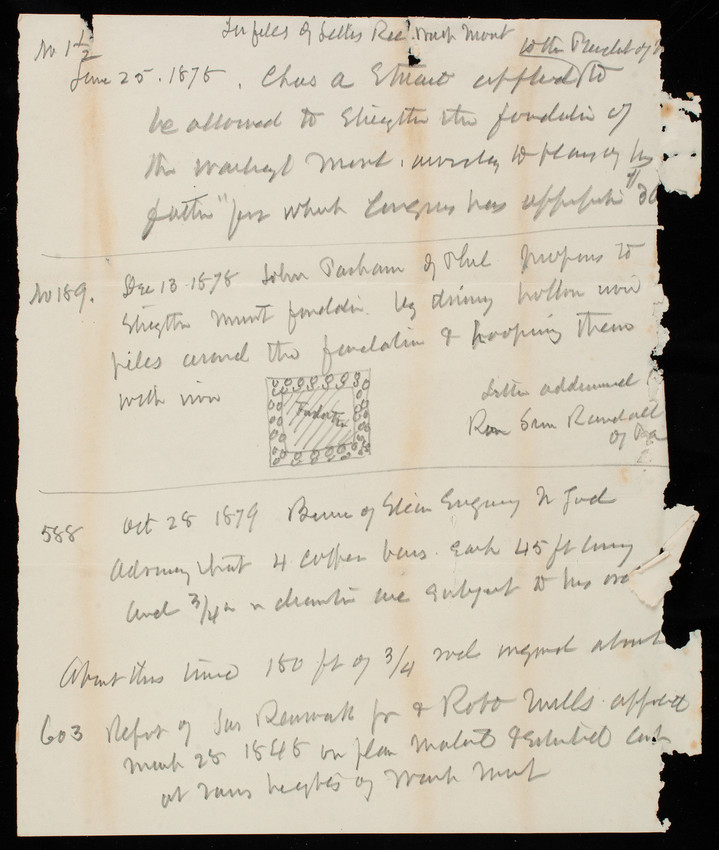 In files of Letters Rec'. Wash Mont
No 1 1/2
to the Presdt of
June 25. 1878. Chas a Stuart applied to
be allowed to Strength the foundatin of
the Washgt Monmt. accordg to plans of his
father" for which Congress has appropriatn "30
No 189. Dec 13 1878 John Parham of Phil proposes to
Strength Monmt foundatin by driving hollow iron
piles around the foundatin & hooping them
with iron
Foundatin
Letter addressed
Hon Sam Randall
of Pa
588 Oct 28 1879 Bureau of Steam Engineerg N Yard
Advising that 4 Copper bars. each 45 ft long
and 3/4 in diamtr are subject to his ord
About this time 180 ft of 3/4 rods required about
603 Report of Jas Renwick jr & Robt Mills. appointd
March 28 1848 on plan Materl & Estimated Cost
at various heights of Wash Mont